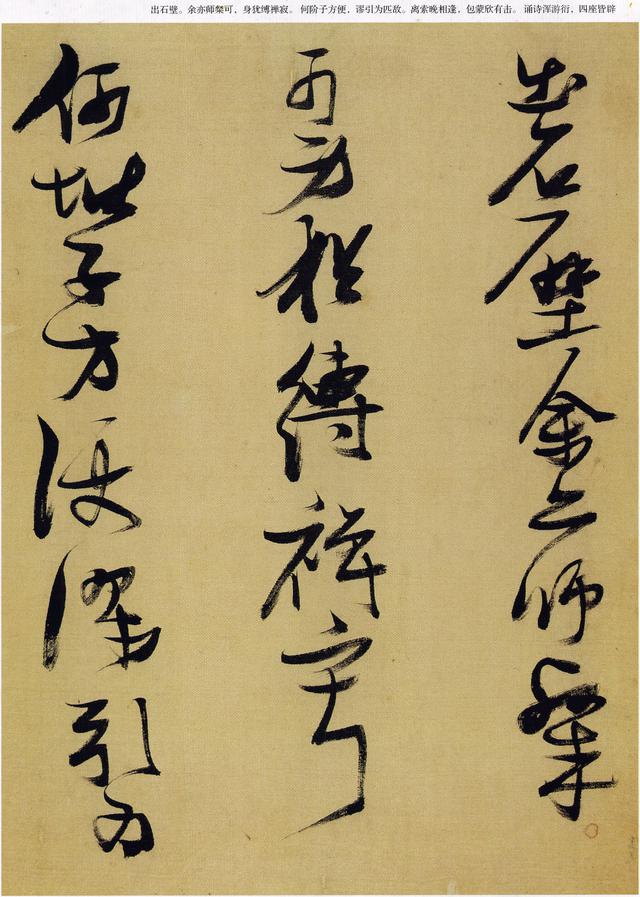 出石壁。余亦师粲可，身犹缚禅寂。 何阶子方便，谬引为匹敌。离索晚相逢，包蒙欣有击。 诵诗浑游衍，四座皆辟
出石壁余亦師粲
可身猶縛禪寂
何堦子方便謬引為